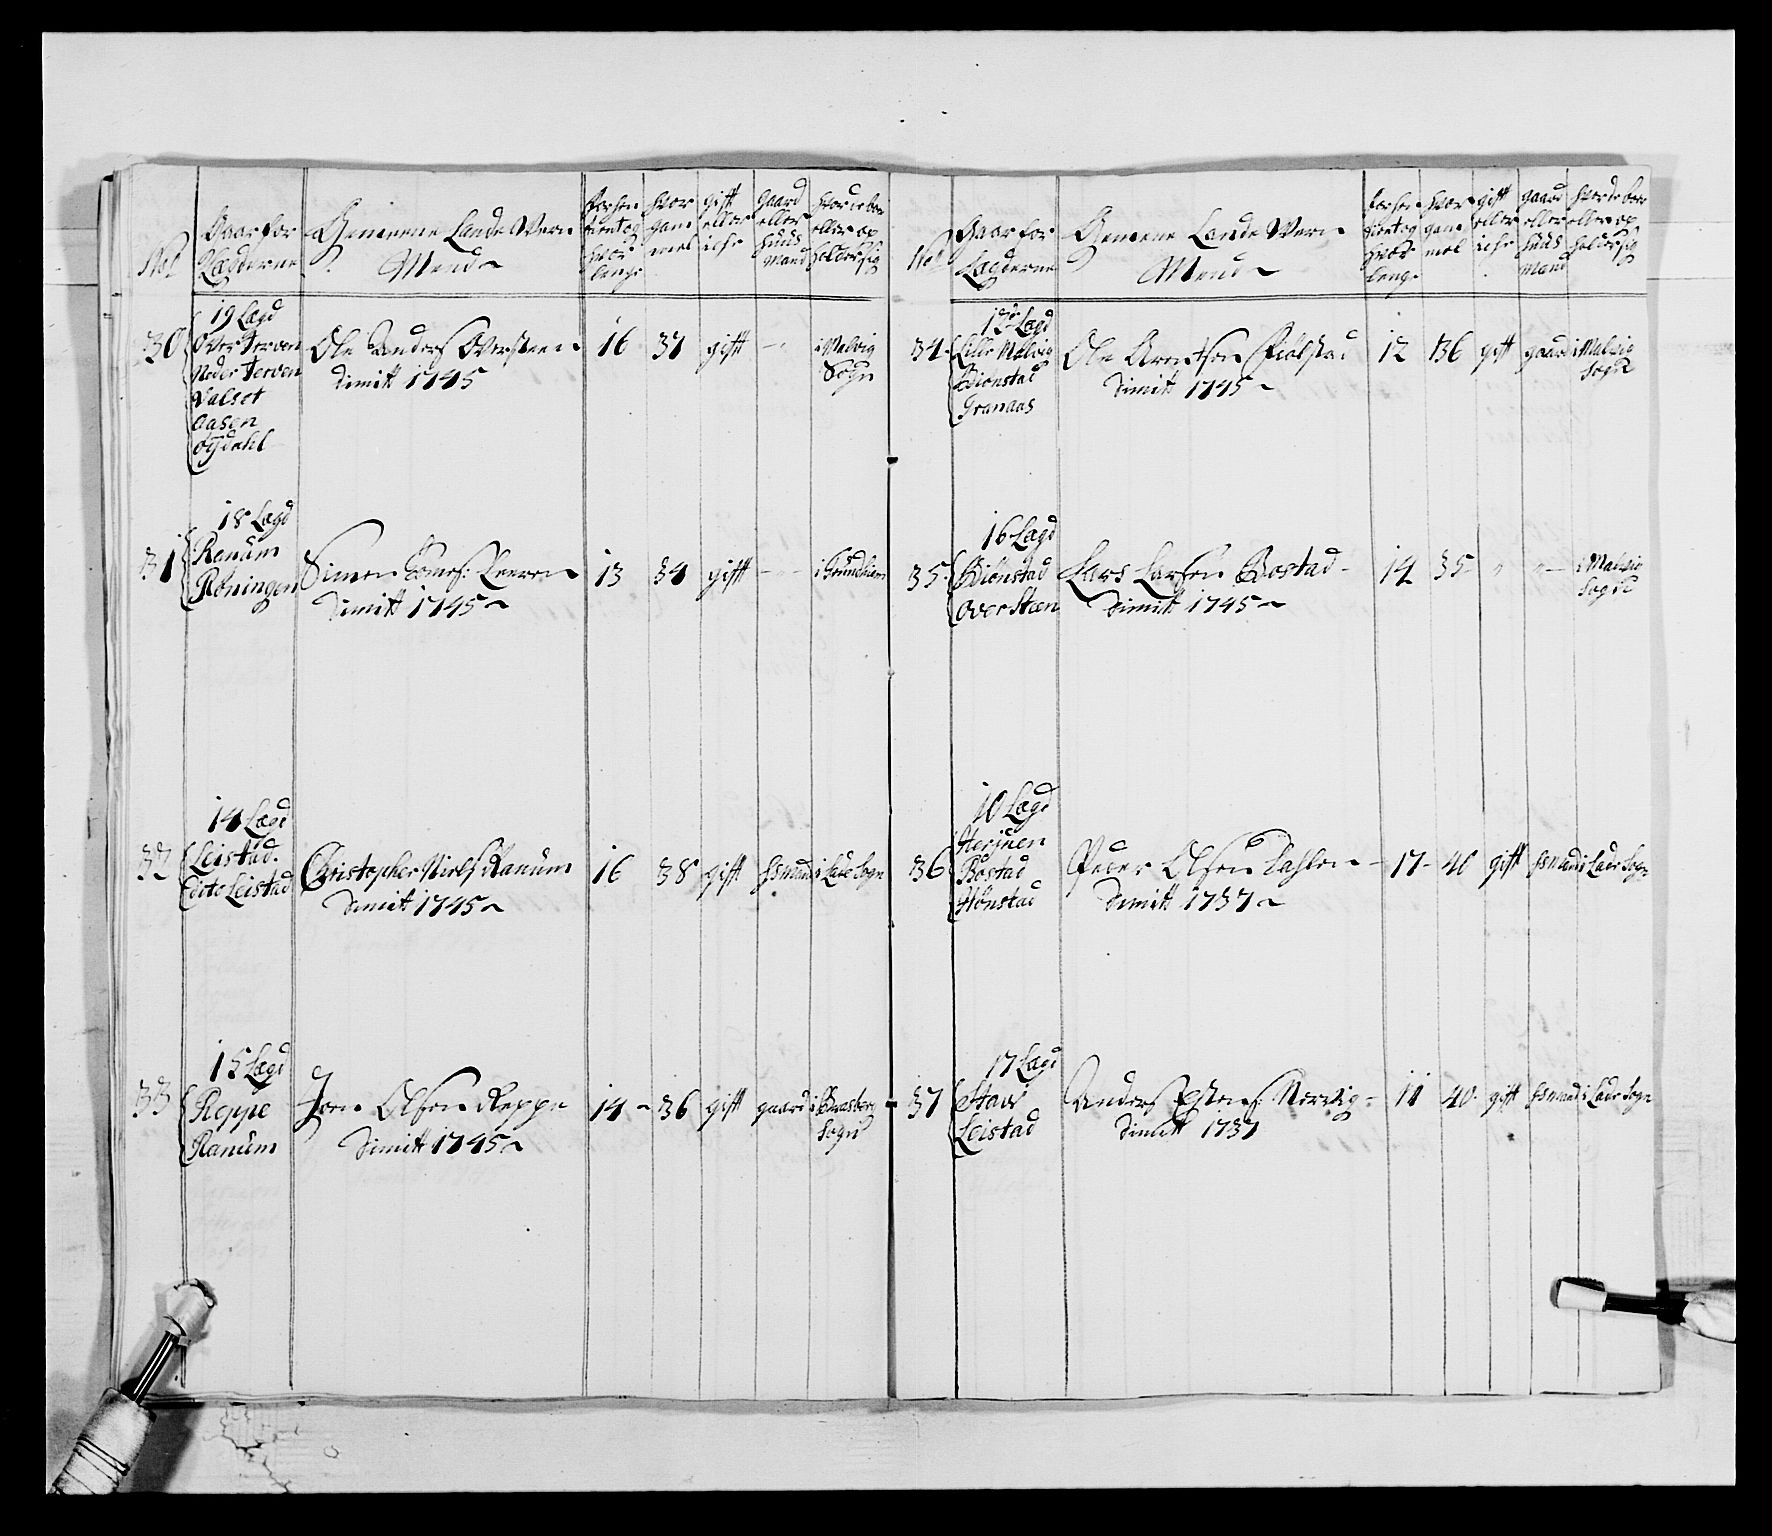 No
Gaar for
Lægderne
Gemeene Lande Wern
Mend
for hen
tient og
hvor
lenge
hvor
gam
mel
gift
eller
ichr
gaard
eller
huus
Mand
hvor de boer
eller op
holder sig
30
19 Lægd
Over Terven
Neder Terven
Valset
Aasen
Ole Anders Oversteen
dimitt 1745
16 37 gift
i Malvig
Sogn
31
18 Lægd
Ranum
Röningen
Simen
dimitt 1745
13 34 gift
32
14 Lægd
Leistad
Leistad
Christopher Niels Ranum
dimitt 1745
16 38 gift hsmand i Lade Sogn
33
15 Lægd
Reppe
Ranum
Joen Olsen Reppe
dimitt 1745
14 36 gift gaard i
Sogn
No
Gaar for
Lægderne
Gemene Lande Wern
Mend
for hen
tient og
hvor
lenge
hvor
gam
mel
gift
eller
ichr
gaard
eller
huus
Mand
hvor de boer
eller op
holder sig
34
12 Lægd
Lille Malvig
Biönstad
Granaas
Ole Arentsen
dimitt 1745
12 36 gift gaard i Malvig
Sogn
35
16 Lægd
Biönstad
Over Steen
Lars Larsen Bostad
dimitt 1745
14 35 " " i Malvig
Sogn
36
10 Lægd
Bostad
Hönstad
Peder Olsen
dimitt 1737
17 40 gift hsmand i Lade Sogn
37
17 Lægd
Stav
Leistad
Anders
dimitt 1737
11 40 gift hsmand i Lade Sogn